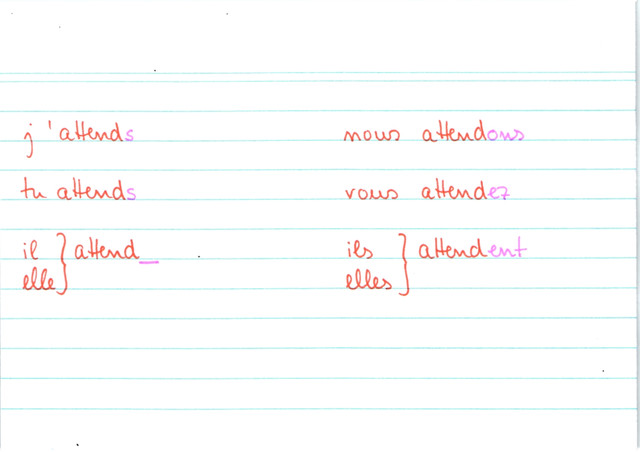 j'attends nous attendons
tu attends vous attendez
il } attend_ ils } attendent
elle elles